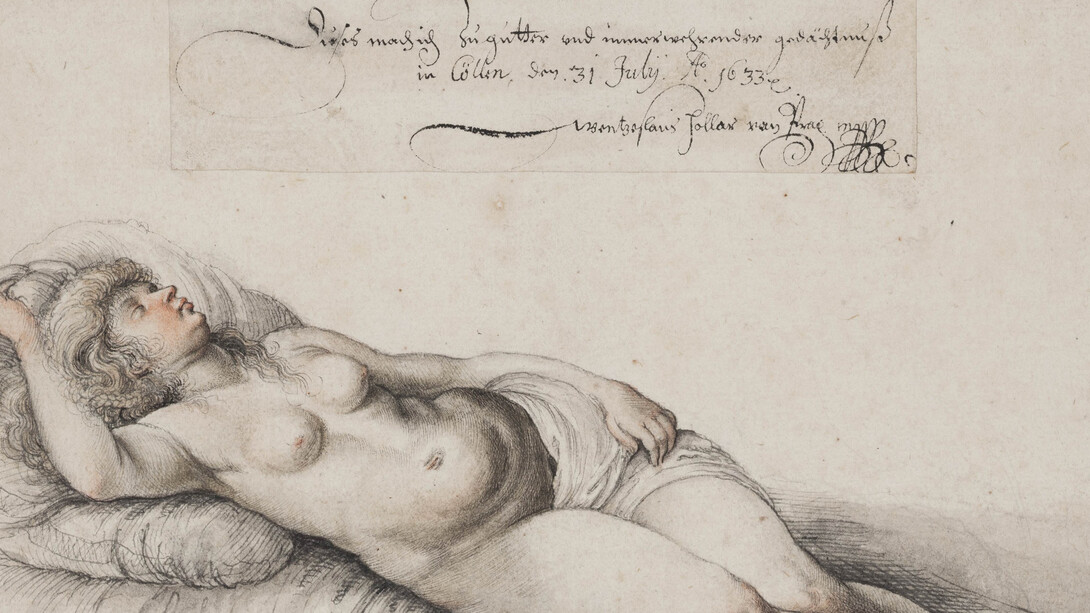 Dieses mach ich zu gutter vnd immerwehrender gedächtnuß
in Cöllen, den 31 July. Aº. 1633
Wentzeslaus Hollar van Prag mpp